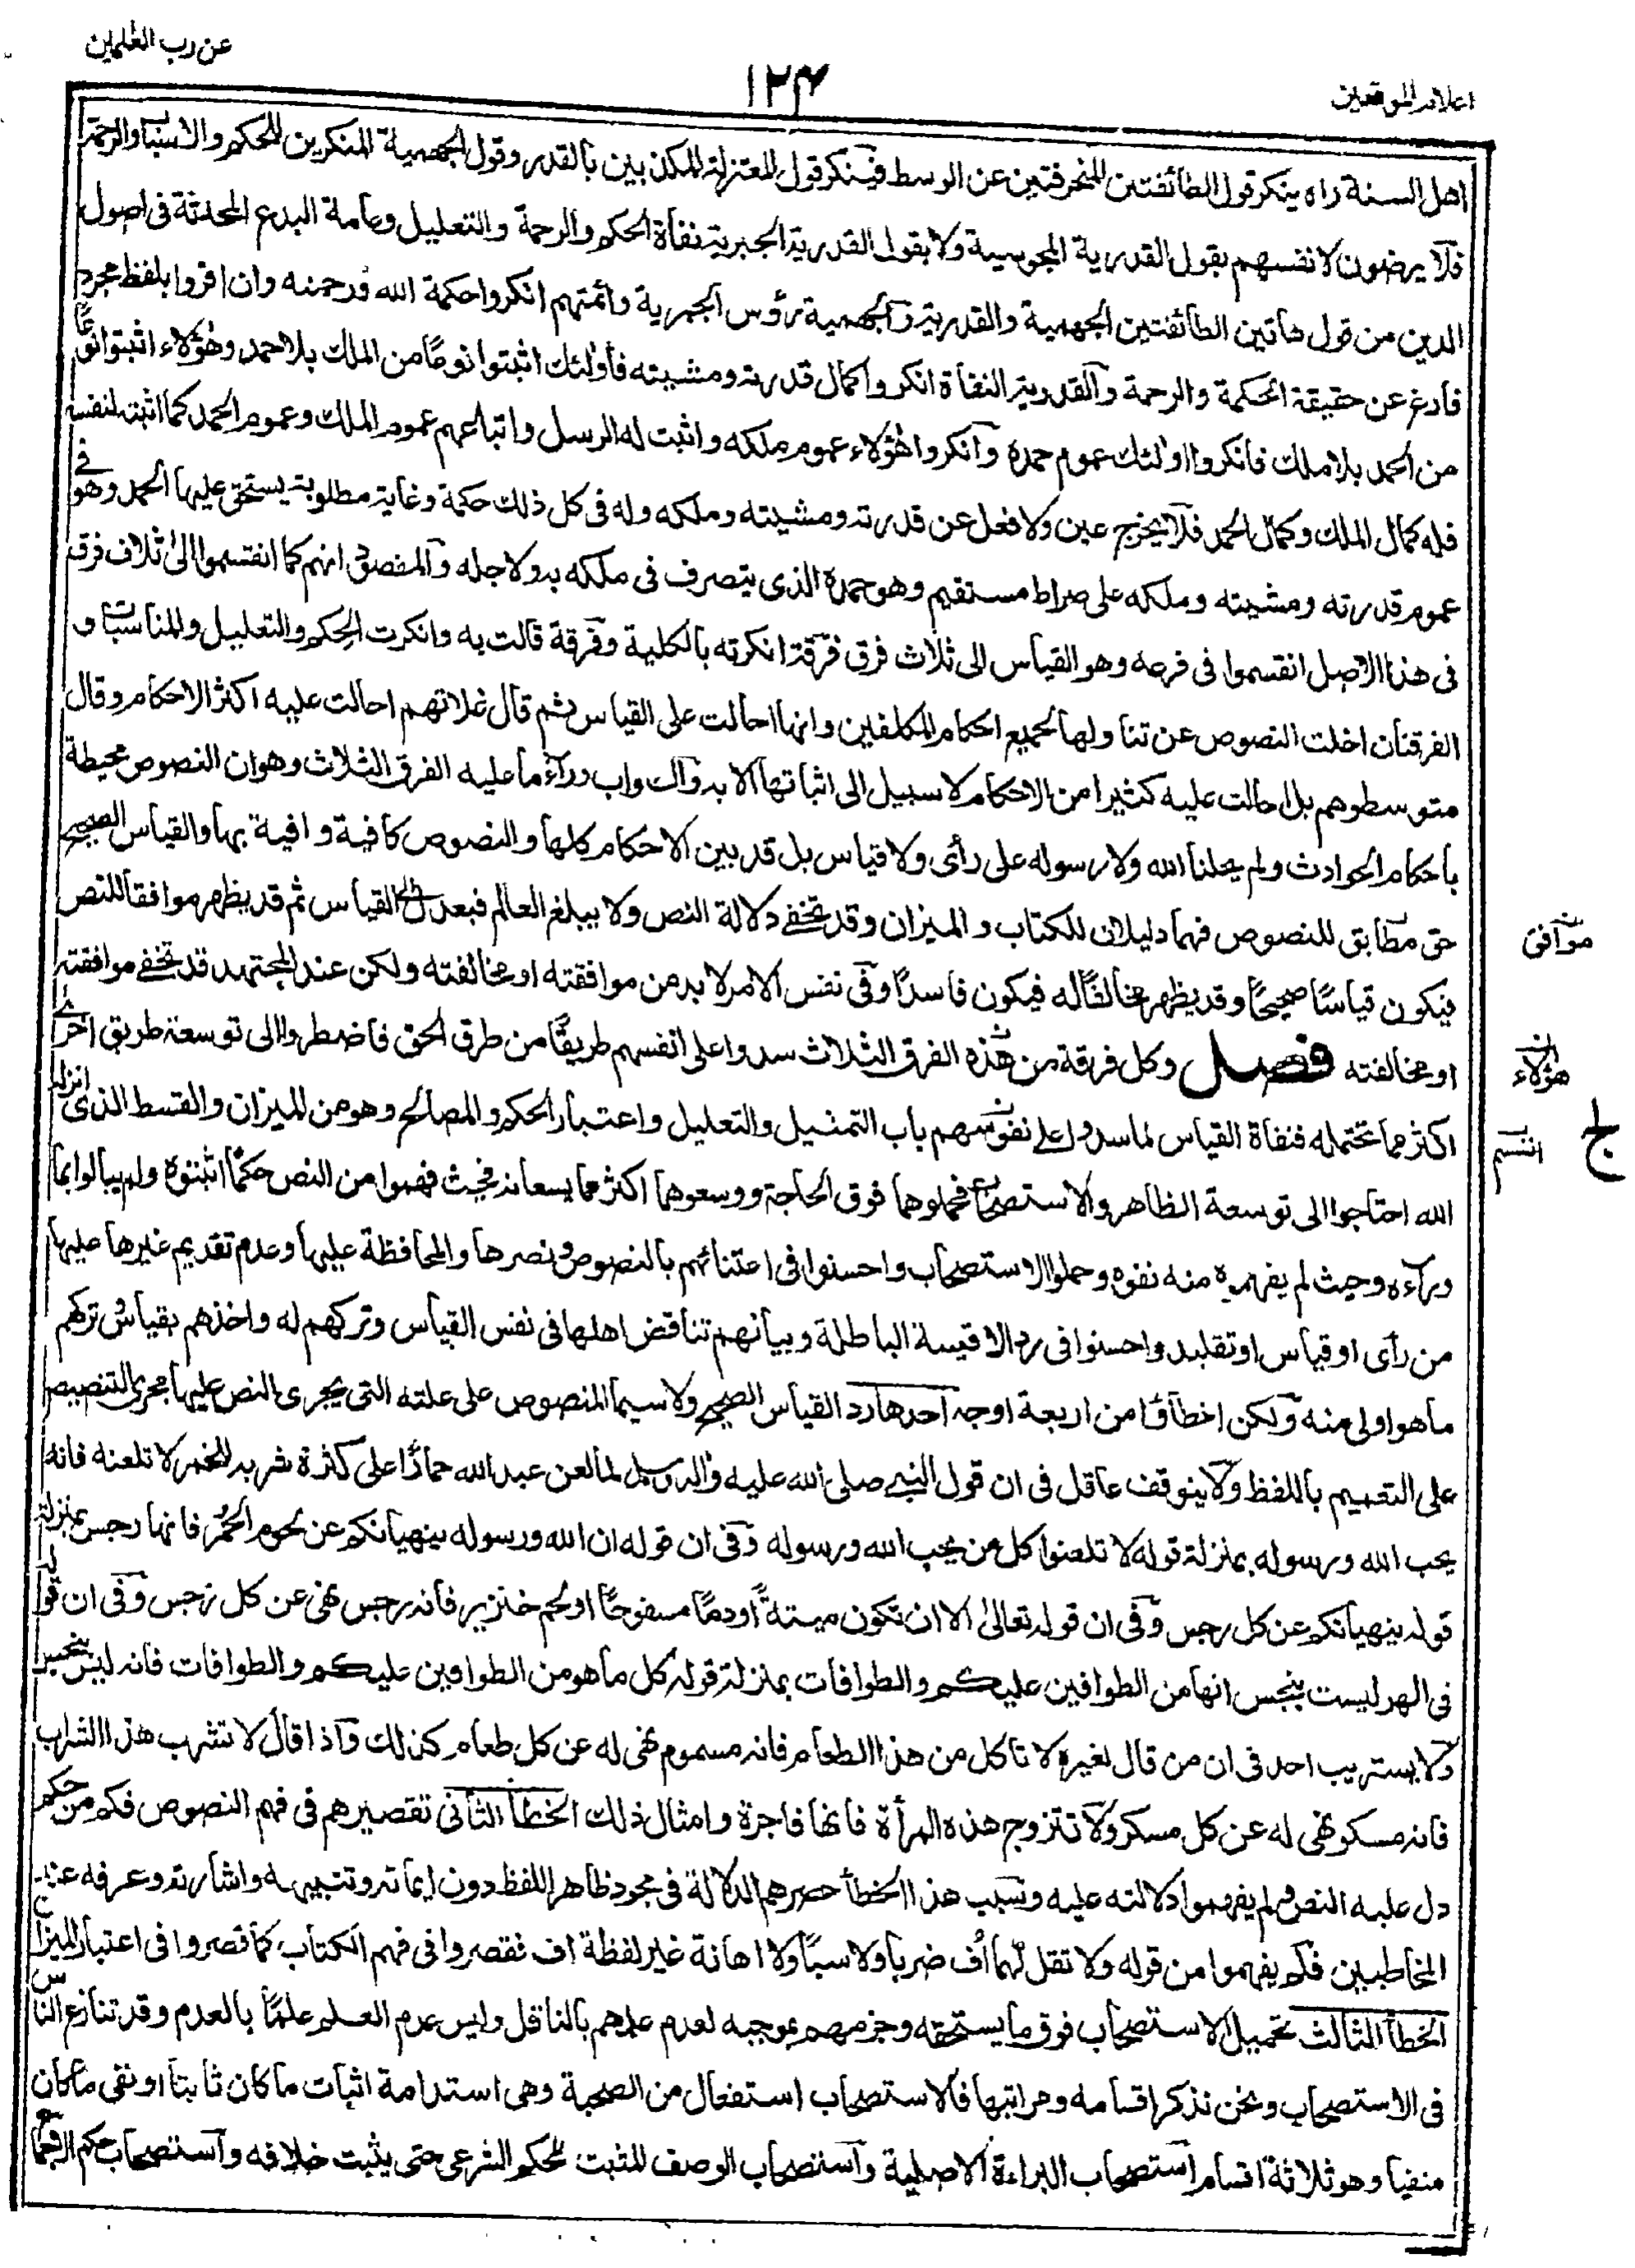 عن رب العلمين
۱۲۴
اعلام الموقعين
اهل السنة راه ينكر قول الطائفتين المنحرفتين عن الوسط فينكر قول المعتزلة المكذبين بالقدر وقول الجهمية المنكرين للحكم والاسباب والرحمة
فلا يرضون لانفسهم بقول القدرية المجوسية ولا بقول القدرية الجبرية نفاة الحكم والرحمة والتعليل وعامة البدع المحدثة فى اصول
الدين من قول هاتين الطائفتين الجهمية والقدرية والجهمية رؤس الجبرية وائمتهم انكروا حكمة الله ورحمته وان اقروا بلفظ مجرد
فارغ عن حقيقة الحكمة والرحمة والقدرية النفاة انكروا كمال قدرته ومشيته فأولئك اثبتوا نوعًا من الملك بلا حمد وهؤلاء اثبتوا نوعًا
من الحمد بلا ملك فانكروا اولئك عموم حمده وانكروا هؤلاء عموم ملكه واثبت له الرسل واتباعهم عموم الملك وعموم الحمد كما اثبته لنفسه
فله كمال الملك وكمال الحمد فلا يخرج عين ولا فعل عن قدرته ومشيته وملكه وله فى كل ذلك حكمة وغاية مطلوبة يستحق عليها الحمد وهو فى
عموم قدرته ومشيته وملكه على صراط مستقيم وهو حمده الذى يتصرف فى ملكه به ولاجله والمقصود انهم كما انقسموا الى ثلاث فرق
فى هذا الاصل انقسموا فى فرعه وهو القياس الى ثلاث فرق فرقة انكرته بالكلية وفرقة قالت به وانكرت الحكم والتعليل والمناسبات و
الفرقتان اخلت النصوص عن تناولها لجميع احكام المكلفين وانها احالت على القياس ثم قال غلاتهم احالت عليه اكثر الاحكام وقال
متوسطوهم بل احالت عليه كثيرا من الاحكام لا سبيل الى اثباتها الا به والصواب وراء ما عليه الفرق الثلاث وهو ان النصوص محيطة
باحكام الحوادث ولم يحلنا الله ولا رسوله على رأى ولا قياس بل قد بين الاحكام كلها والنصوص كافية وافية بها والقياس الصحيح
حق مطابق للنصوص فهما دليلان للكتاب والميزان وقد تخفى دلالة النص ولا يبلغ العالم فيعدل الى القياس ثم قد يظهر موافقا للنص
فيكون قياسًا صحيحًا وقد يظهر مخالفًا له فيكون فاسدًا وفى نفس الامر لا بد من موافقته او مخالفته ولكن عند المجتهد قد تخفى موافقته
او مخالفته فصل وكل فرقة من هذه الفرق الثلاث سدوا على انفسهم طريقًا من طرق الحق فاضطروا الى توسعة طريق اخرى
اكثر مما تحتمله فنفاة القياس لما سدوا على نفوسهم باب التمثيل والتعليل واعتبار الحكم والمصالح وهو من الميزان والقسط الذى انزله
الله احتاجوا الى توسعة الظاهر والاستصحاب فحملوهما فوق الحاجة ووسعوهما اكثر مما يسعانه فحيث فهموا من النص حكمًا اثبتوه ولم يبالوا بما
وراءه وحيث لم يفهموه منه نفوه وحملوا الاستصحاب واحسنوا فى اعتنائهم بالنصوص ونصرها والمحافظة عليها وعدم تقديم غيرها عليها
من رأى او قياس او تقليد واحسنوا فى رد الاقيسة الباطلة وبيانهم تناقض اهلها فى نفس القياس وتركهم له واخذهم بقياس تركهم
ما هو اولى منه ولكن اخطأوا من اربعة اوجه احدها رد القياس الصحيح ولا سيما المنصوص على علته التى يجرى النص عليها مجرى التنصيص
على التعميم باللفظ ولا يتوقف عاقل فى ان قول النبى صلى الله عليه واله وسلم لما لعن عبد الله حمارًا على كثرة شربه للخمر لا تلعنه فانه
يحب الله ورسوله بمنزلة قوله لا تلعنوا كل من يحب الله ورسوله وفى ان قوله ان الله ورسوله ينهيانكم عن لحوم الحمر فانها رجس بمنزلة
قوله ينهيانكم عن كل رجس وفى ان قوله تعالى الا ان تكون ميتة أو دمًا مسفوحًا او لحم خنزير فانه رجس نهى عن كل رجس وفى ان قوله
فى الهر ليست بنجس انها من الطوافين عليكم والطوافات بمنزلة قوله كل ما هو من الطوافين عليكم والطوافات فانه ليس بنجس
ولا يستريب احد فى ان من قال لغيره لا تاكل من هذا الطعام فانه مسموم نهى له عن كل طعام كذلك واذا قال لا تشرب هذا الشراب
فانه مسكر نهى له عن كل مسكر ولا تتزوج هذه المرأة فانها فاجرة وامثال ذلك الخطأ الثانى تقصيرهم فى فهم النصوص فكم من حكم
دل عليه النص ولم يفهموا دلالته عليه وسبب هذا الخطأ حصرهم الدلالة فى مجرد ظاهر اللفظ دون ايمائه وتنبيهه واشارته وعرفه عند
المخاطبين فلم يفهموا من قوله ولا تقل لهما أف ضربا ولا سبًا ولا اهانة غير لفظة اف فقصروا فى فهم الكتاب كما قصروا فى اعتبار الميزان
الخطأ الثالث تحميل الاستصحاب فوق ما يستحقه وجزمهم بموجبه لعدم علمهم بالناقل وليس عدم العلم علمًا بالعدم وقد تنازع الناس
فى الاستصحاب ونحن نذكر اقسامه ومراتبها فالاستصحاب استفعال من الصحبة وهى استدامة اثبات ما كان ثابتا او نفى ما كان
منفيا وهو ثلاثة اقسام استصحاب البراءة الاصلية واستصحاب الوصف المثبت للحكم الشرعى حتى يثبت خلافه واستصحاب حكم الاجماع
موافق
هؤلاء